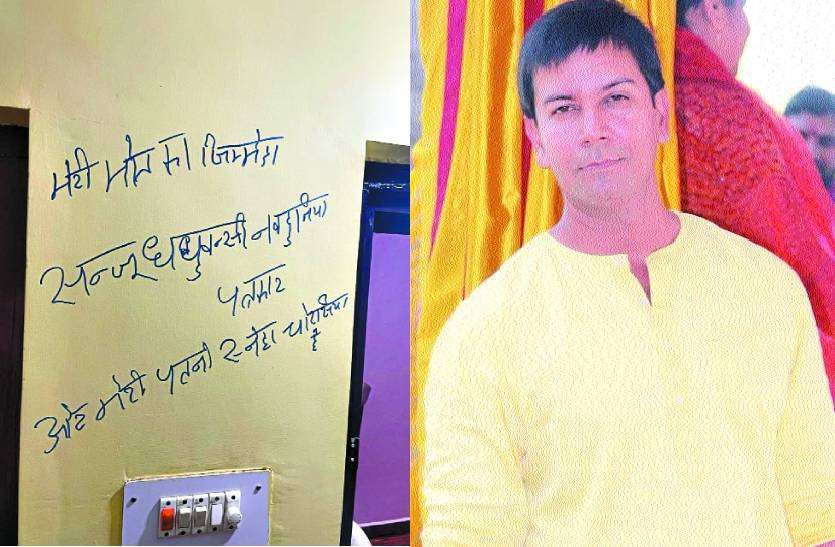 मेरी मोत का जिम्मेदा
सन्जू नवदुनिया
पत्रकार
और मेरी पत्नी स्नेहा चोरसिया
है